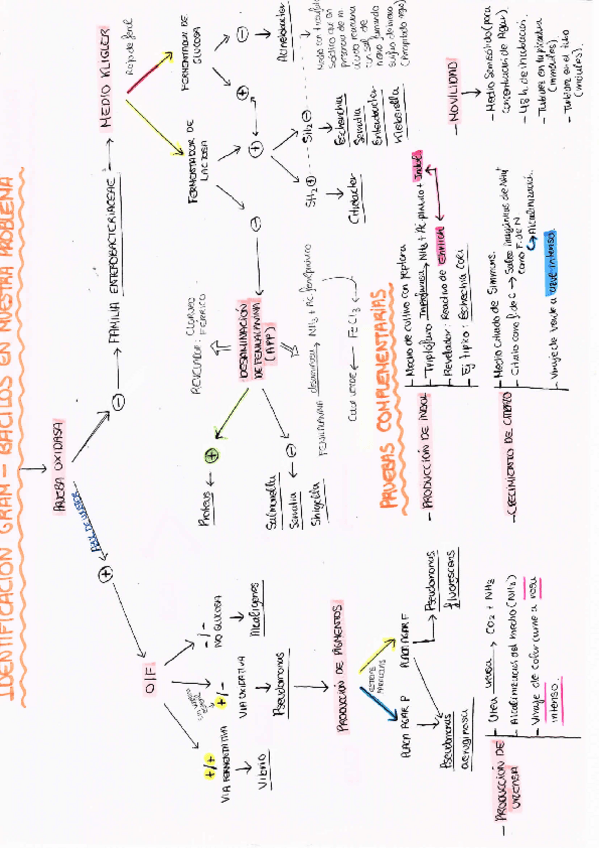 IDENTIFICACIÓN GRAM - BACILOS EN NUESTRA PROBLEMA
PRUEBA OXIDASA
+
-
FAMILIA ENTEROBACTERIACEAE
MEDIO KLIGLER
Rojo de fenol
O/F
+/+
VIA FERMENTATIVA
Vibrio
+/-
VIA OXIDATIVA
Pseudomonas
-/-
NO GLUCOSA
Alcaligenes
PRODUCCIÓN DE PIGMENTOS
PLACA AGAR P
PLACA AGAR F
Pseudomonas
aeruginosa
Pseudomonas
fluorescens
FERMENTADOR DE
LACTOSA
FERMENTADOR DE
GLUCOSA
-
+
+
-
Acinetobacter
SH2 +
SH2 -
Citrobacter
Escherichia
Serratia
Enterobacter
Klebsiella
DESAMINACIÓN
DE FENILALANINA
(APP)
REVELADOR: CLORURO
FÉRRICO
+
Proteus
-
Salmonella
Serratia
Shigella
FENILALANINA desaminasa NH3 + Ác. fenilpirúvico
FeCl3
COLOR VERDE
PRUEBAS COMPLEMENTARIAS
- PRODUCCIÓN DE INDOL
- Medio de cultivo con peptona
- Triptófano Triptofanasa NH3 + Ác. pirúvico + Indol
- Revelador: Reactivo de Ehrlich
- Ej. típico: Escherichia Coli
- MOVILIDAD
- Medio Semisólido (poca
concentración de Agar).
- 48 h. de incubación.
- Turbidez en la picadura
(inmóviles)
- Turbidez en el tubo
(móviles).
- CRECIMIENTO DE CITRATO
- Medio citrato de Simmons.
- Citrato como f. de C Sales inorgánicas de NH4+
como f. de N
Alcalinización.
- Viraje de verde a azul intenso.
- PRODUCCIÓN DE
UREASA
- Urea ureasa CO2 + NH3
- Alcalinización del medio (NH3)
- Viraje de color carne a rosa
intenso.